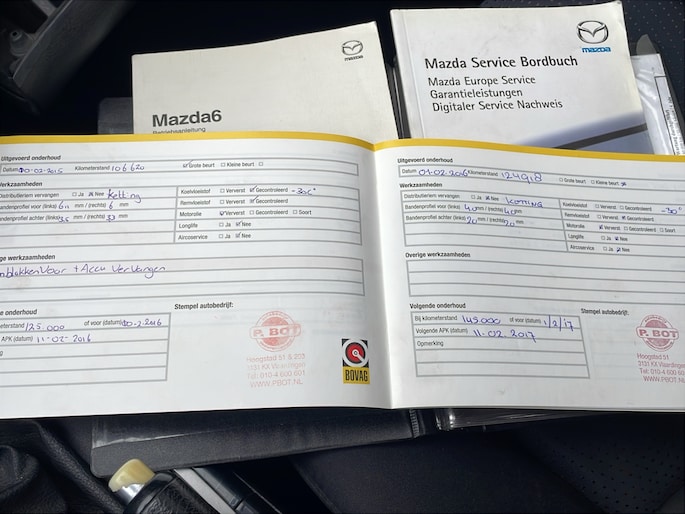 mazda
Mazda6
Betriebsanleitung
mazda
Mazda Service Bordbuch
Mazda Europe Service
Garantieleistungen
Digitaler Service Nachweis
Uitgevoerd onderhoud
Datum 10-02-2015 Kilometerstand 106620 Grote beurt Kleine beurt
Werkzaamheden
Distributieriem vervangen Ja Nee Ketting
Bandenprofiel voor (links) 6 mm / (rechts) 6 mm
Bandenprofiel achter (links) mm / (rechts) mm
Koelvloeistof Ververst Gecontroleerd -30c°
Remvloeistof Ververst Gecontroleerd
Motorolie Ververst Gecontroleerd Soort
Longlife Ja Nee
Aircoservice Ja Nee
ge werkzaamheden
nblokken Voor + Accu Vervangen
de onderhoud
terstand 125.000 of voor (datum) 10-2-2016
APK (datum) 11-02-2016
Stempel autobedrijf:
P. BOT
Hoogstad 51 & 203
3131 KX Vlaardingen
Tel: 010-4 600 601
WWW.PBOT.NL
BOVAG
Uitgevoerd onderhoud
Datum 01-02-2016 Kilometerstand 124918 Grote beurt Kleine beurt
Werkzaamheden
Distributieriem vervangen Ja Nee
Bandenprofiel voor (links) 40 mm / (rechts) 40 mm
Bandenprofiel achter (links) 20 mm / (rechts) 20 mm
Koelvloeistof Ververst Gecontroleerd -30°
Remvloeistof Ververst Gecontroleerd
Motorolie Ververst Gecontroleerd Soort
Longlife Ja Nee
Aircoservice Ja Nee
Overige werkzaamheden
Volgende onderhoud
Bij kilometerstand 145000 of voor (datum) 1/2/17
Volgende APK (datum) 11-02-2017
Opmerking
Stempel autobedrijf:
P. BOT
Hoogstad 51
3131 KX Vlaardingen
Tel: 010-4 600 60
WWW.PBOT.NL